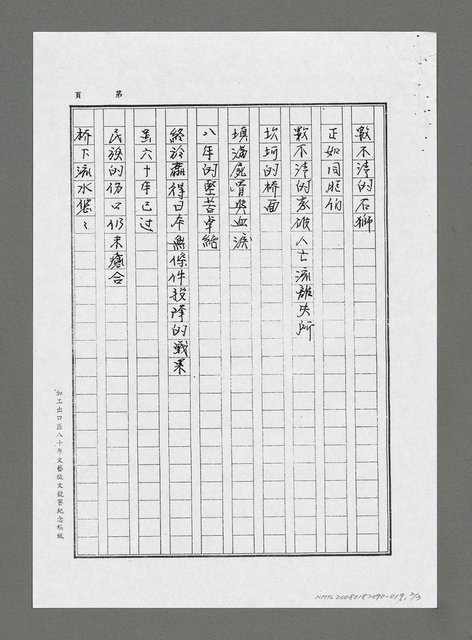 第　頁
數不清的石獅
正如同胞们
數不清的家破人亡流離失所
坎坷的桥面
填滿屍骨與血淚
八年的堅苦卓絕
終於贏得日本無條件投降的戰果
虽六十年已过
民族的伤口仍未癒合
桥下流水悠々
加工出口區八十年文藝徵文競賽紀念稿紙
NMTL20080187090-019, 2/3